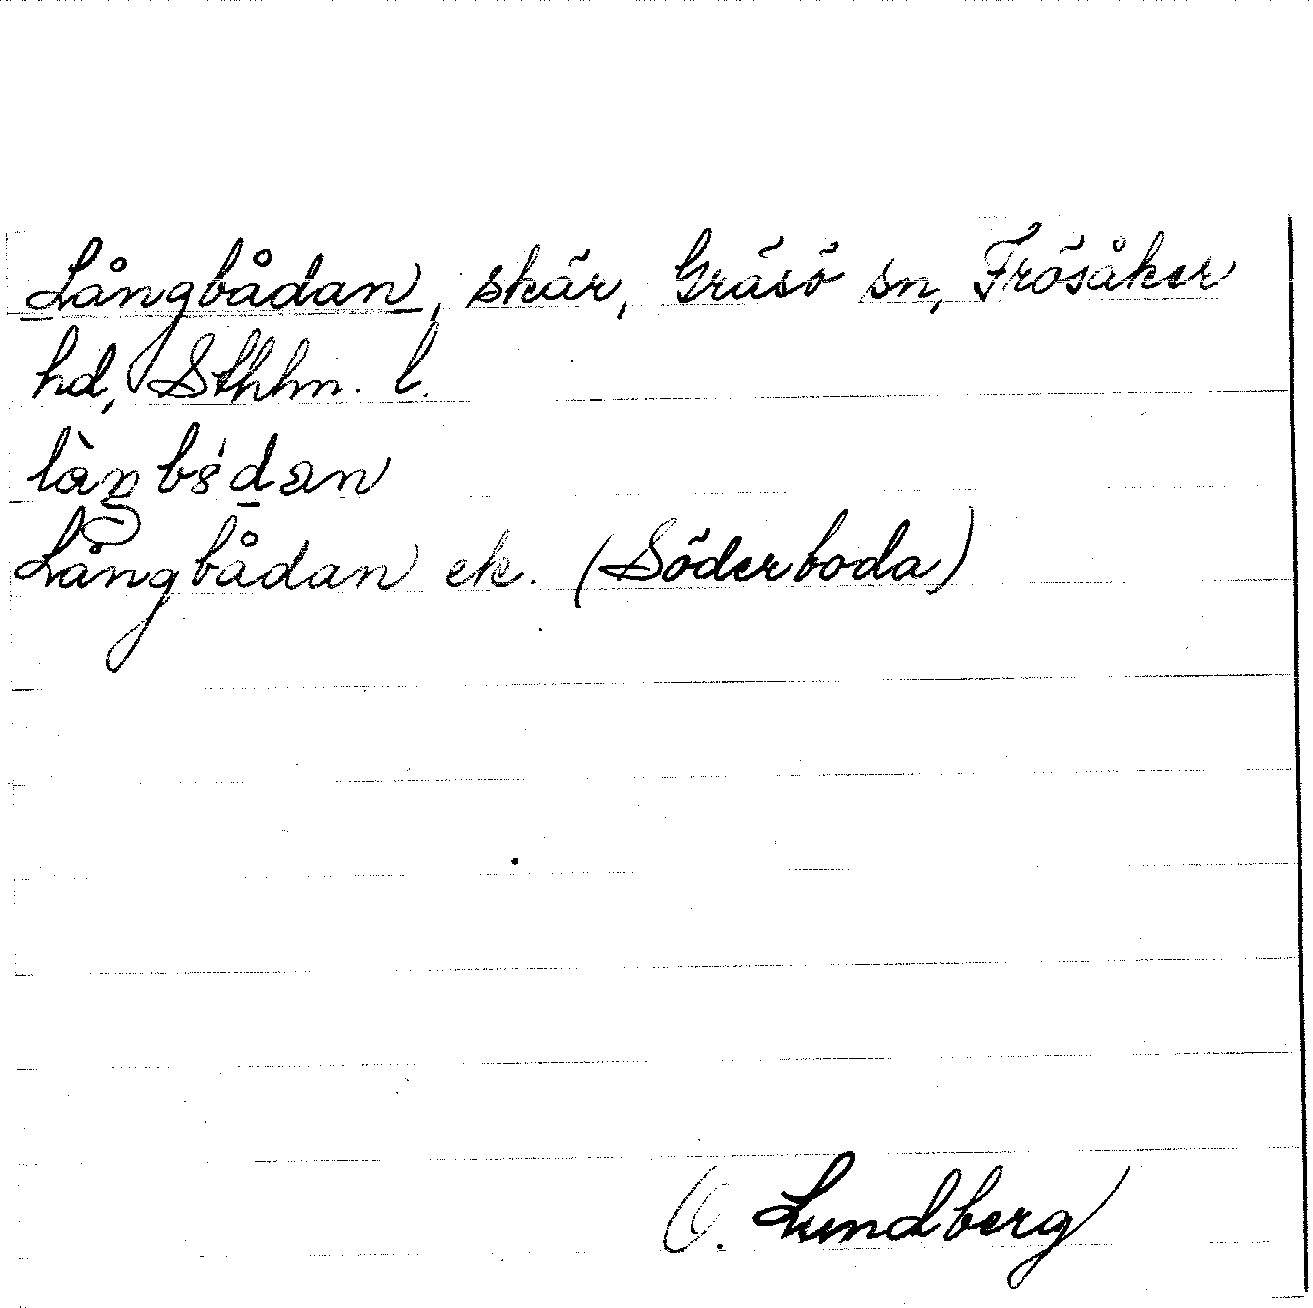 Långbådan, skär, Gräsö sn, Frösåker
hd, Sthlm. l.
Långbådan ek. (Söderboda)
O. Lundberg